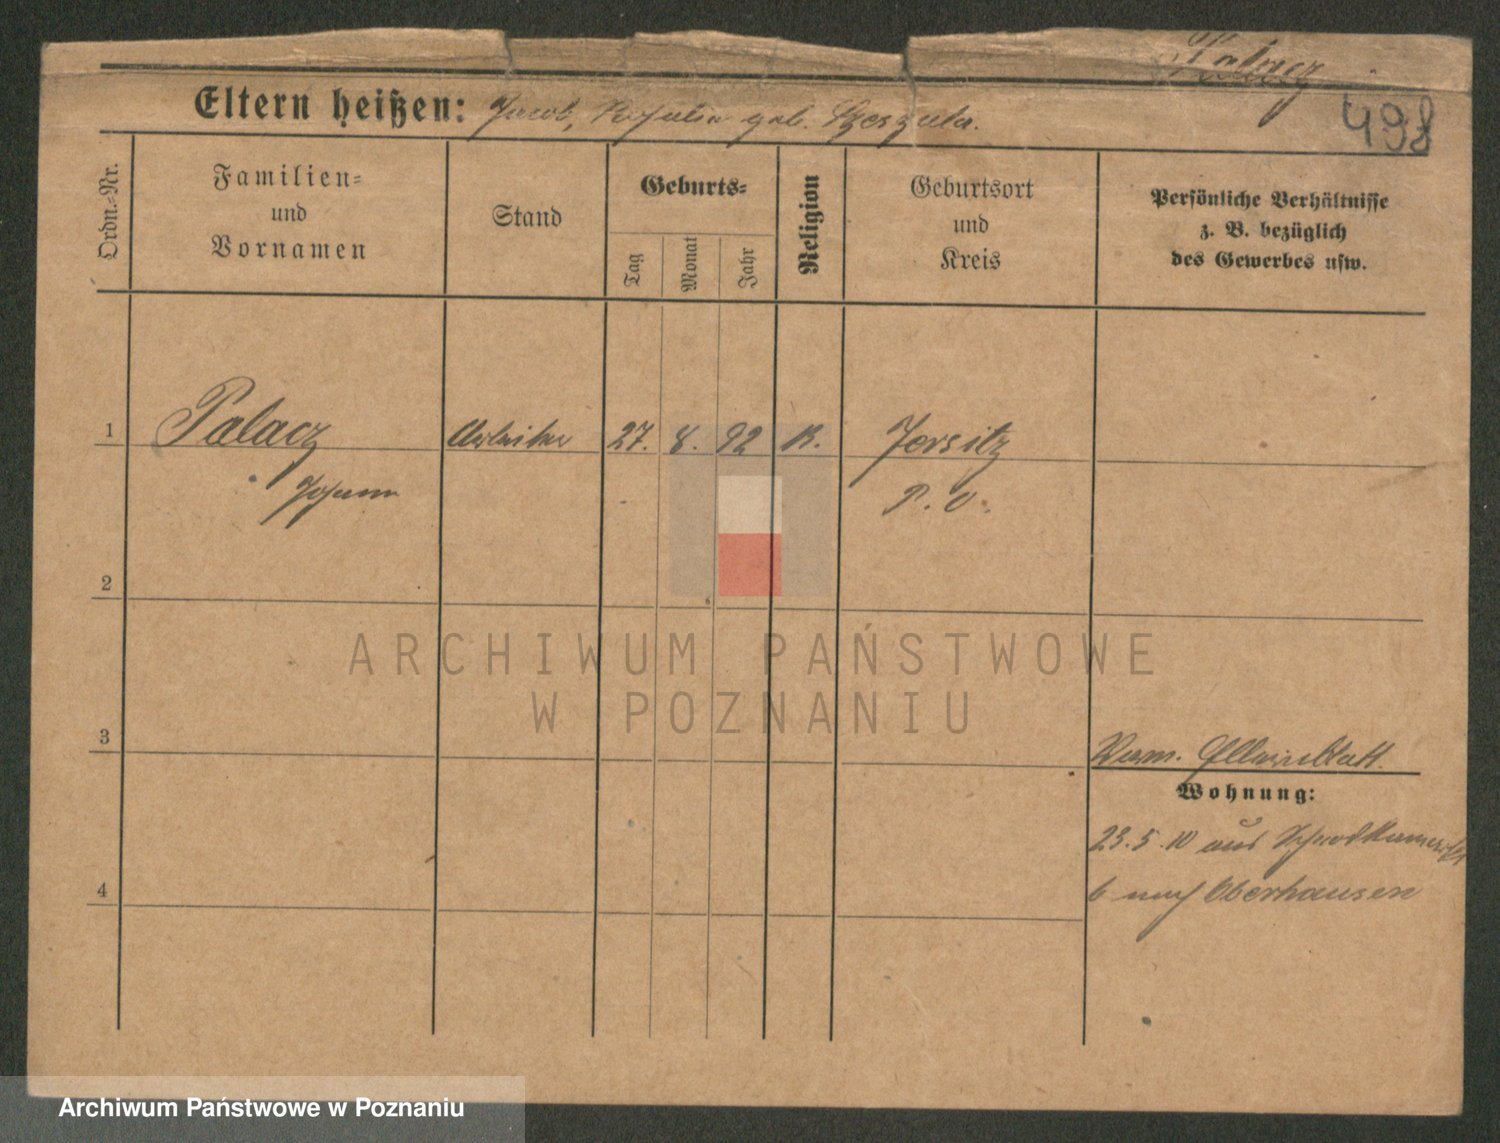 Palacz
498
Eltern heißen: Jacob, Rosalia geb. Szeszula.
Ordn.-Nr.
Familien-
und
Vornamen
Stand
Geburts-
Tag
Monat
Jahr
Religion
Geburtsort
und
Kreis
Persönliche Verhältnisse
z. B. bezüglich
des Gewerbes usw.
1 Palacz Arbeiter 27. 8. 92 K. Jersitz
Johann P. O.
2
ARCHIWUM PAŃSTWOWE
W POZNANIU
3
Verm. Elternblatt.
Wohnung:
23.5.10 aus
6 nach Oberhausen
4
Archiwum Państwowe w Poznaniu